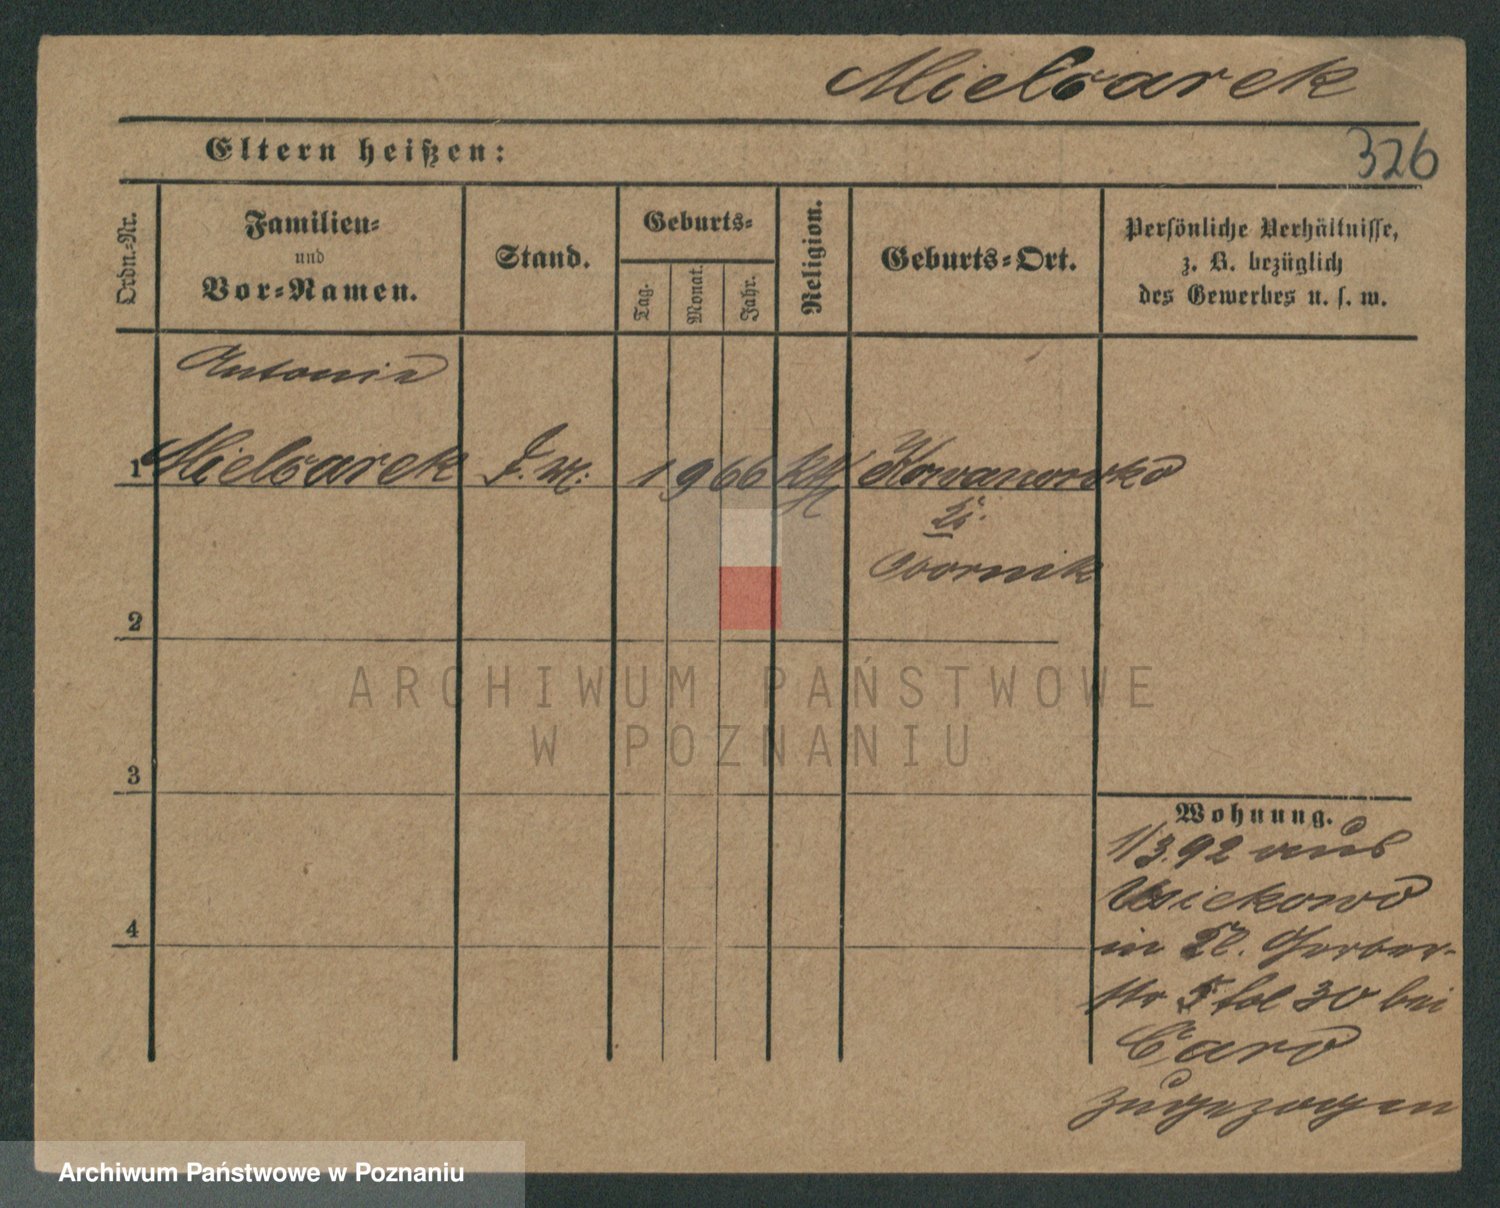 Mielcarek
326
Eltern heißen:
Ordn.-Nr.
Familien-
und
Vor-Namen.
Stand.
Geburts-
Tag.
Monat.
Jahr.
Religion.
Geburts-Ort.
Persönliche Verhältnisse,
z. B. bezüglich
des Gewerbes u. s. w.
Antonie
1 Mielcarek 1 9 66 kth Kowanowko
Obornik
2
3
4
Wohnung.
1/3.92 aus
in Kl. Gerber-
str 5 fol 30 bei
Caro
zugezogen
ARCHIWUM PAŃSTWOWE
W POZNANIU
Archiwum Państwowe w Poznaniu